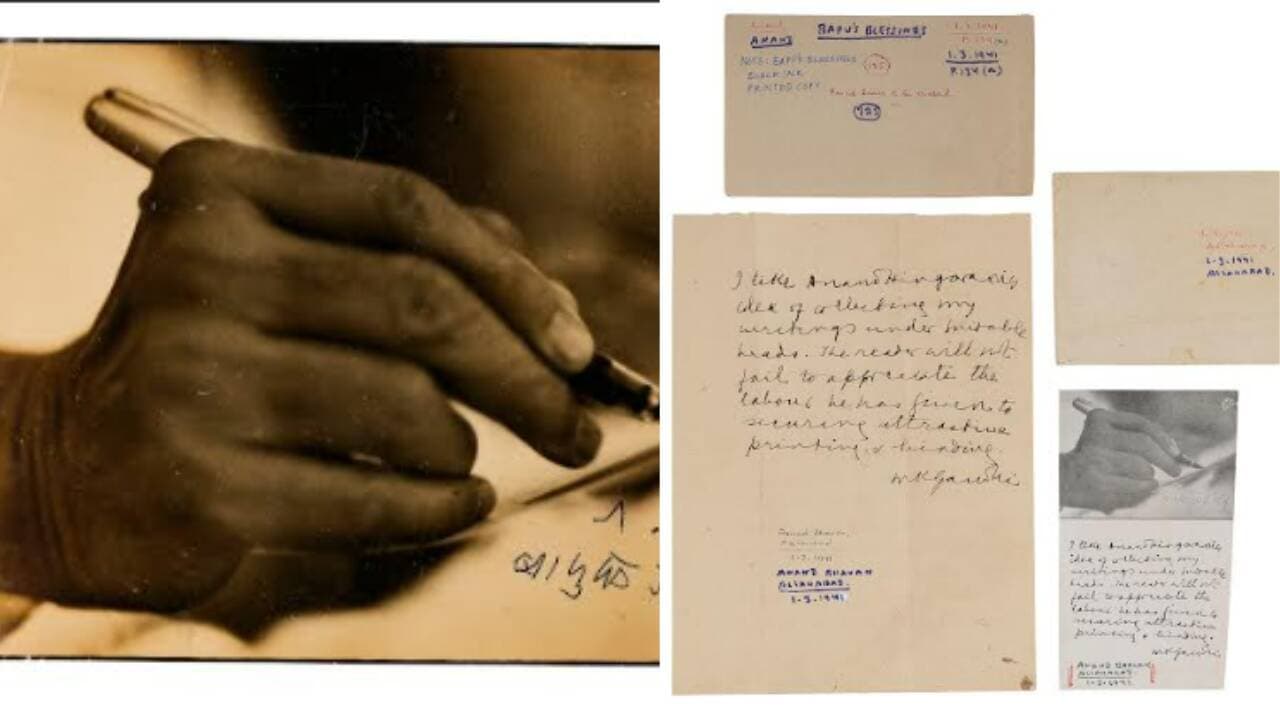 বাপুর
ANAND
BAPU'S BLESSINGS
1.3.1941
P.134 (a)
NOTE: BAPU'S BLESSINGS
BLACK INK
PRINTED COPY
1.3.1941
ALLAHABAD.
I like Anand Hingorani's
idea of collecting my
writings under suitable
heads. The reader will not
fail to appreciate the
labour he has given to
securing attractive
printing & binding.
MKGandhi
Anand Bhavan
1.3.1941
ANAND BHAVAN
ALLAHABAD.
1-3-1941
I like Anand Hingorani's
idea of collecting my
writings under suitable
heads. The reader will not
fail to appreciate the
labour he has given to
securing attractive
printing & binding.
MKGandhi
ANAND BHAVAN
ALLAHABAD
1-3-1941